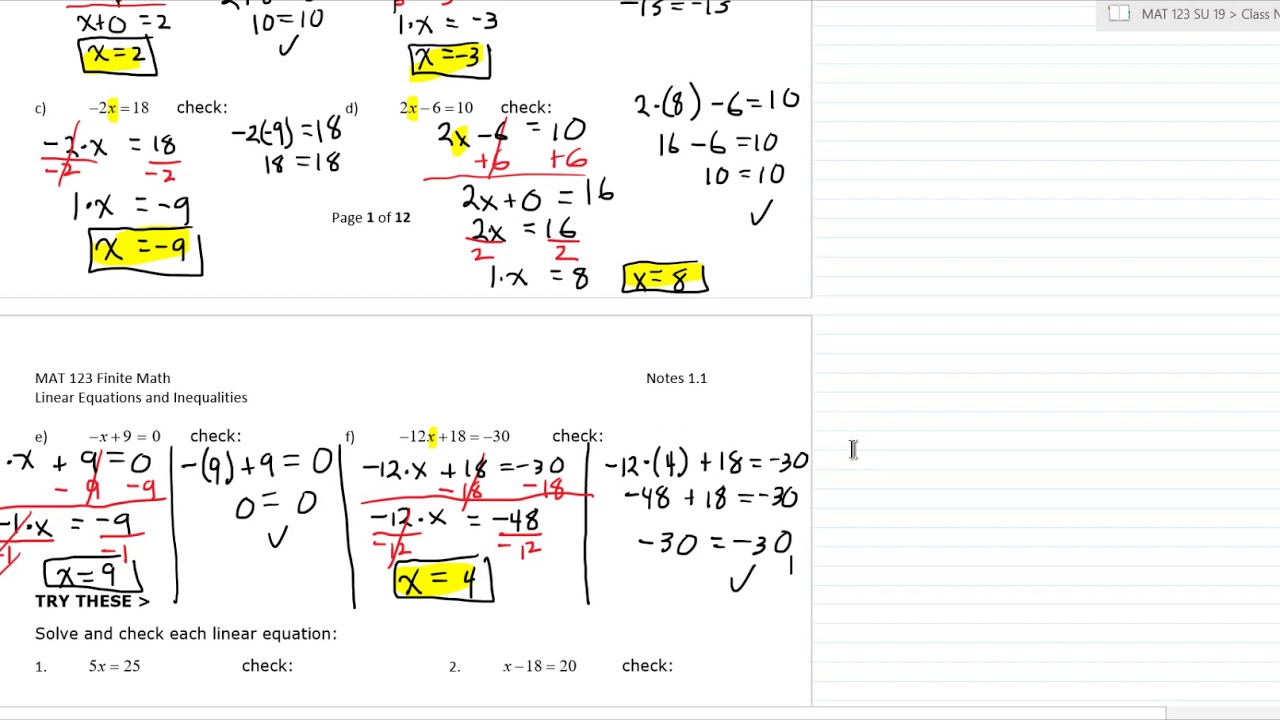 MAT 123 SU 19 > Class
x+0 = 2
10=10
✓
1·x = -3
-15 = -15
x=2
x=-3
c) −2x = 18 check:
-2·x = 18
-2 -2
1·x = -9
x = -9
-2(-9) = 18
18 = 18
d) 2x − 6 = 10 check:
2x - 6 = 10
+6 +6
2x + 0 = 16
2x = 16
2 2
1·x = 8
x = 8
2·(8) - 6 = 10
16 - 6 = 10
10 = 10
✓
Page 1 of 12
MAT 123 Finite Math Notes 1.1
Linear Equations and Inequalities
e) −x + 9 = 0 check:
·x + 9 = 0
- 9 -9
-1·x = -9
-1 -1
x = 9
-(9) + 9 = 0
0 = 0
✓
f) −12x + 18 = −30 check:
-12·x + 18 = -30
- 18 -18
-12·x = -48
-12 -12
x = 4
-12·(4) + 18 = -30
-48 + 18 = -30
-30 = -30
✓
TRY THESE >
Solve and check each linear equation:
1. 5x = 25 check: 2. x − 18 = 20 check: